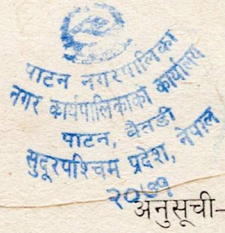 पाटन नगरपालिका
नगर कार्यपालिकाको कार्यालय
पाटन, बैतडी
सुदूरपश्चिम प्रदेश, नेपाल
२०७९
अनुसूची-